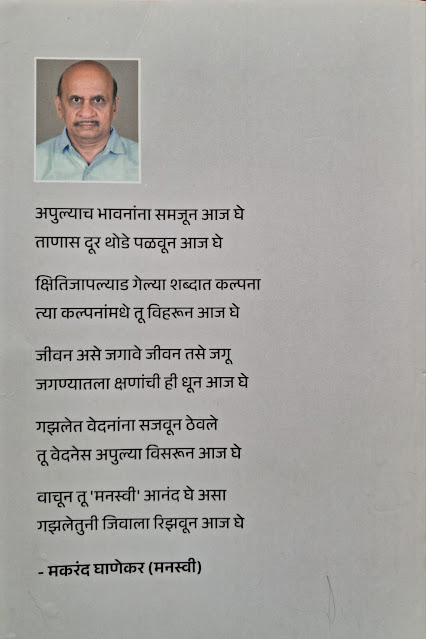 अपुल्याच भावनांना समजून आज घे
ताणास दूर थोडे पळवून आज घे
क्षितिजापल्याड गेल्या शब्दात कल्पना
त्या कल्पनांमधे तू विहरून आज घे
जीवन असे जगावे जीवन तसे जगू
जगण्यातला क्षणांची ही धून आज घे
गझलेत वेदनांना सजवून ठेवले
तू वेदनेस अपुल्या विसरून आज घे
वाचून तू 'मनस्वी' आनंद घे असा
गझलेतुनी जिवाला रिझवून आज घे
- मकरंद घाणेकर (मनस्वी)